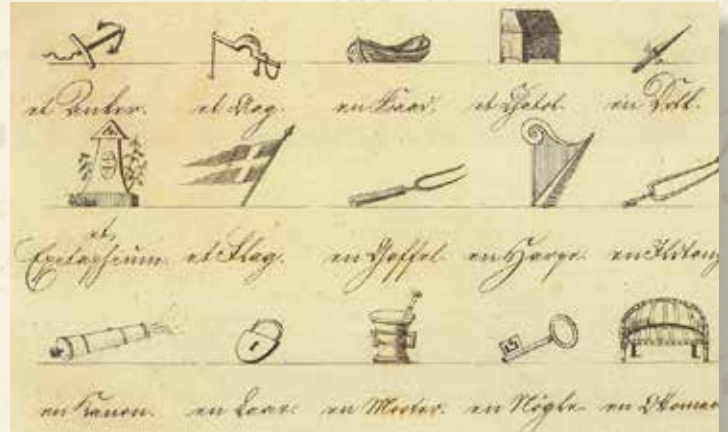 et Anker. et Aag. en Baad. et Chatol. en Dolk.
et
Epitaphium. et Flag. en Gaffel. en Harpe. en Ildtang
en Kanon. en Laas. en Morter. en Nögle. en Otoman